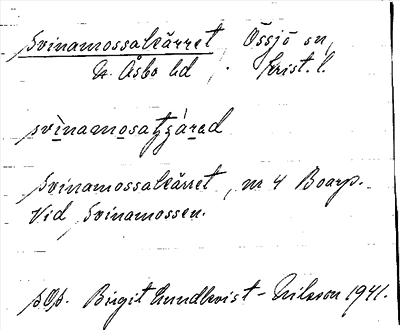 Svinamossakärret, Össjö sn,
N. Åsbo hd, Krist. l.
Svinamossakärret, nr 4 Boarp.
Vid Svinamossen.
Birgit Lundkvist-Nilsson 1941.